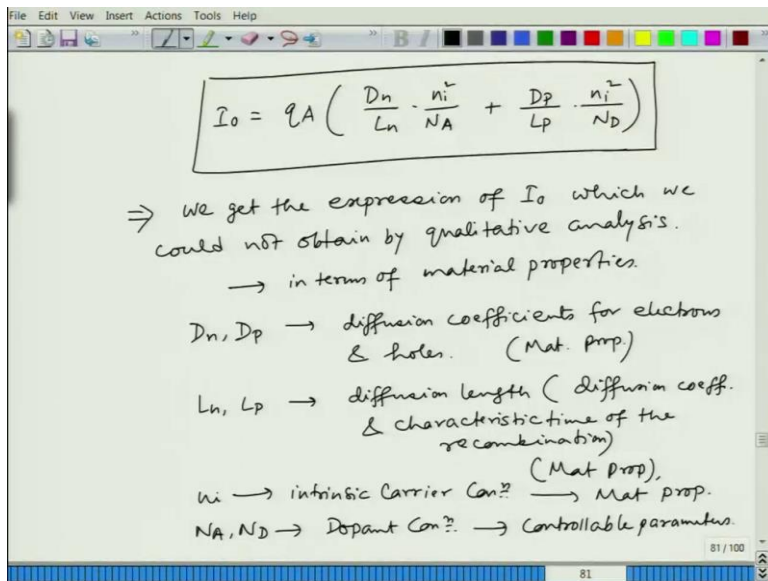 File Edit View Insert Actions Tools Help
I₀ = qA ( Dn/Ln · ni²/NA + Dp/Lp · ni²/ND )
⇒ we get the expression of I₀ which we
could not obtain by qualitative analysis.
→ in terms of material properties.
Dn, Dp → diffusion coefficients for electrons
& holes. (Mat. prop.)
Ln, Lp → diffusion length ( diffusion coeff.
& characteristic time of the
recombination)
(Mat Prop),
ni → intrinsic Carrier Conⁿ. → Mat prop.
NA, ND → Dopant Conⁿ. → Controllable parameters.
81 / 100
81